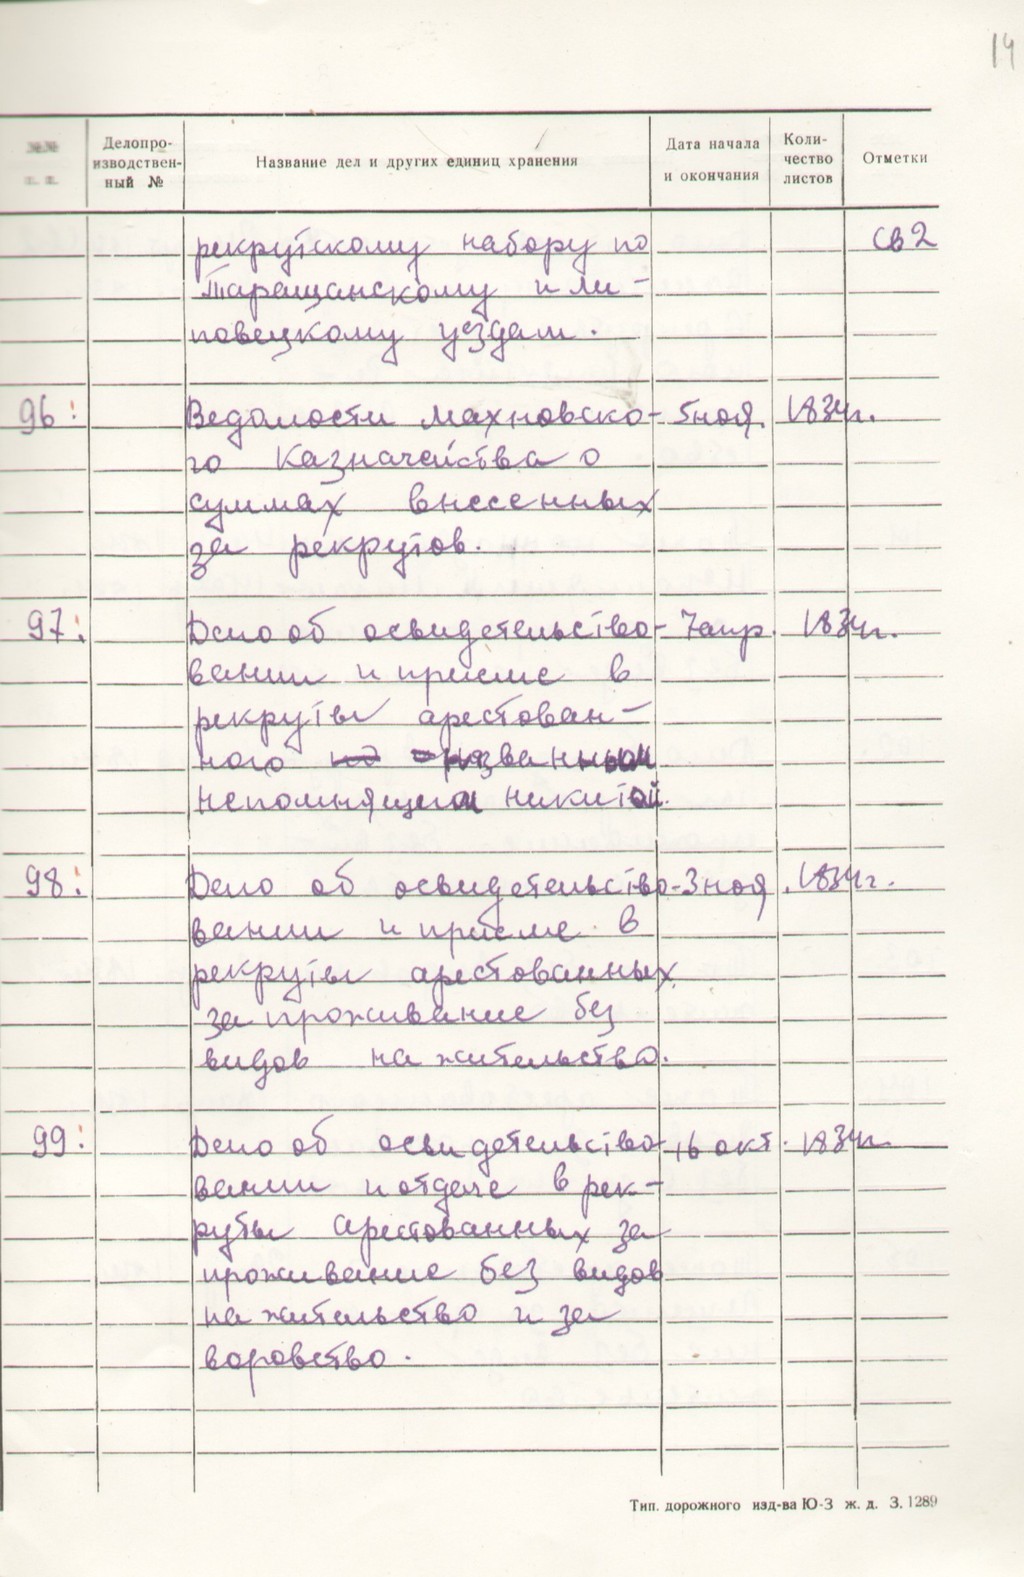 14
№№ п. п. Делопро- изводствен- ный № Название дел и других единиц хранения Дата начала и окончания Коли- чество листов Отметки
рекрутскому набору по св 2
Таращанскому и Ли-
повецкому уездам.
96. Ведомости Махновско- 5 ноя. 1834 г.
го Казначейства о
суммах внесенных
за рекрутов.
97. Дело об освидетельство- 7 апр. 1834 г.
вании и приеме в
рекруты арестован-
ного названным
непомнящим Никитой.
98. Дело об освидетельство- 3 ноя. 1834 г.
вании и приеме в
рекруты арестованных
за проживание без
видов на жительство.
99. Дело об освидетельство- 16 окт. 1834 г.
вании и отдаче в рек-
руты арестованных за
проживание без видов
на жительство и за
воровство.
Тип. дорожного изд-ва Ю-З ж. д. З. 1289